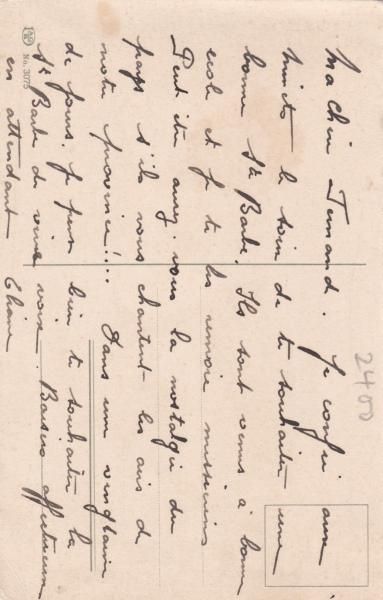 Mon cher Fernand. Je confie aux
huits le soin de te souhaiter une
bonne Ste Barbe. Ils sont venus à bonne
école et je te les renvoie musiciens
Peut être aurez-vous la nostalgie du
pays s'ils vous chantent les airs de
notre province!... Dans une vingtaine
de jours. Je puis bien te souhaiter la
Ste Barbe de vive voix. Baisers affectueux
en attendant
Eliane
No. 3075
2400